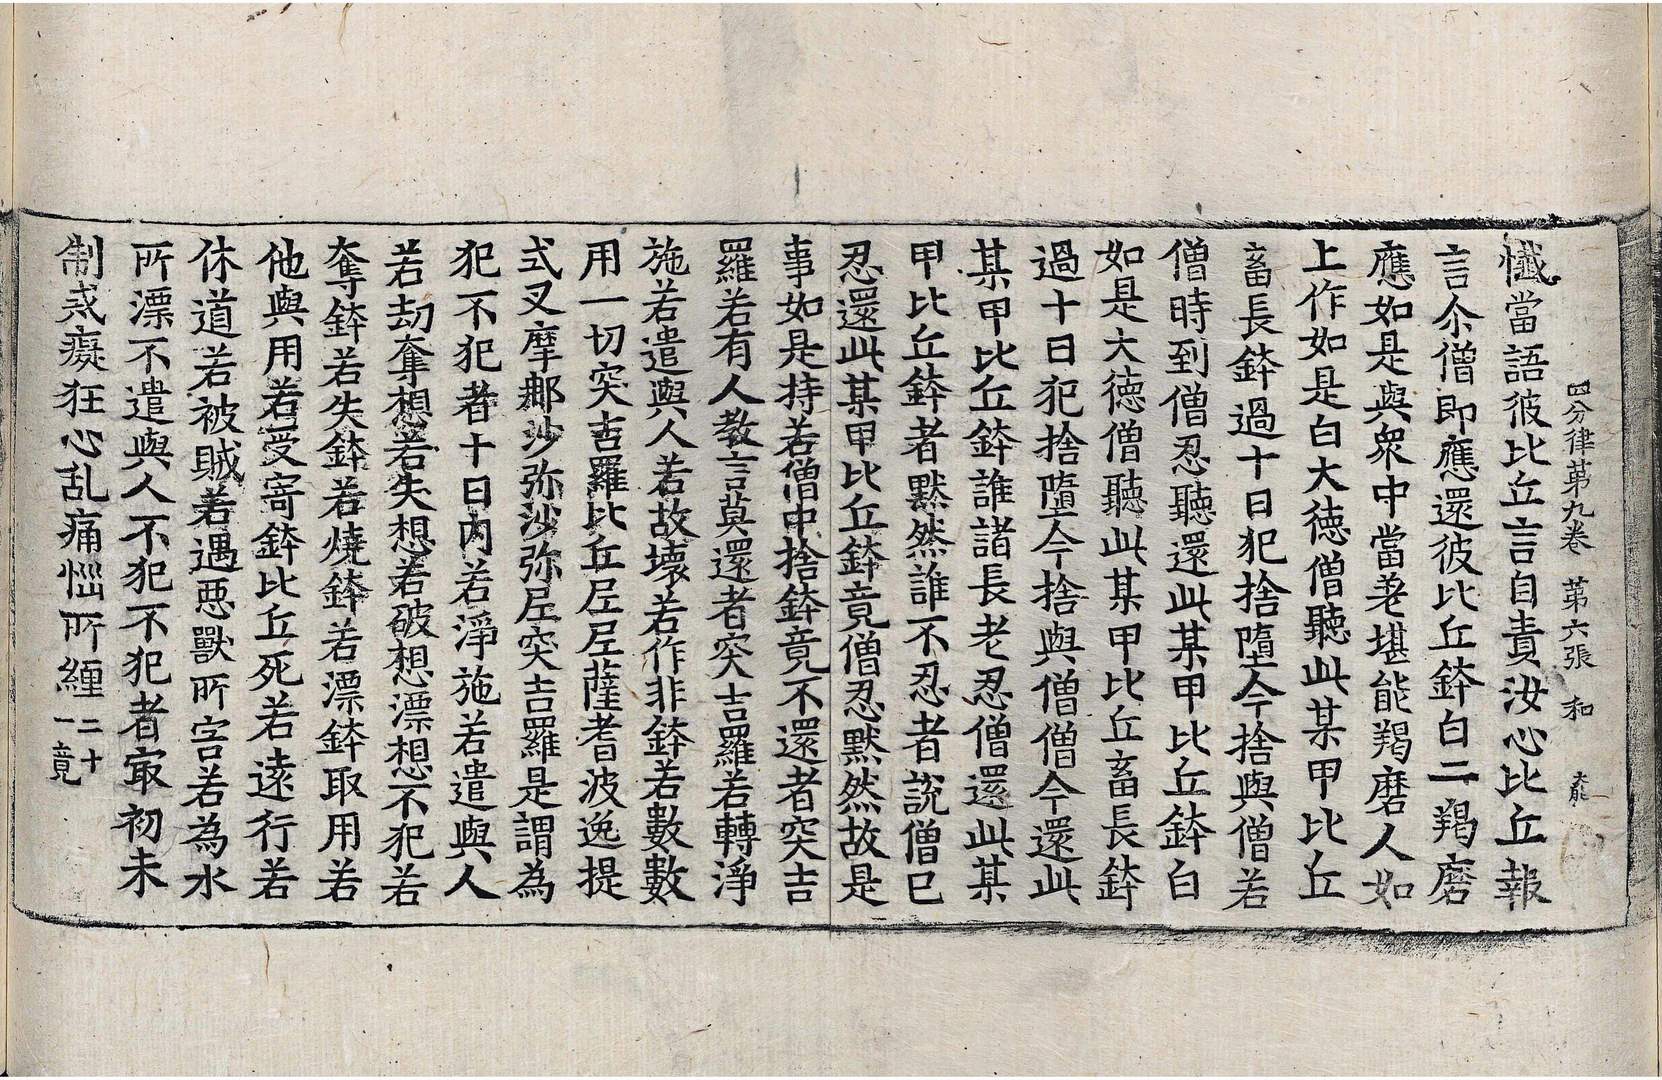 四分律第九卷 第六張 和 大能
懺當語彼比丘言自責汝心比丘報
言尒僧即應還彼比丘鉢白二羯磨
應如是與衆中當差堪能羯磨人如
上作如是白大德僧聽此某甲比丘
畜長鉢過十日犯捨墮今捨與僧若
僧時到僧忍聽還此某甲比丘鉢白
如是大德僧聽此某甲比丘畜長鉢
過十日犯捨墮今捨與僧僧今還此
某甲比丘鉢誰諸長老忍僧還此某
甲比丘鉢者默然誰不忍者說僧已
忍還此某甲比丘鉢竟僧忍默然故是
事如是持若僧中捨鉢竟不還者突吉
羅若有人教言莫還者突吉羅若轉淨
施若遣與人若故壞若作非鉢若數數
用一切突吉羅比丘尼尼薩耆波逸提
式叉摩那沙弥沙弥尼突吉羅是謂為
犯不犯者十日內若淨施若遣與人
若劫奪想若失想若破想漂想不犯若
奪鉢若失鉢若燒鉢若漂鉢取用若
他與用若受寄鉢比丘死若遠行若
休道若被賊若遇惡獸所害若為水
所漂不遣與人不犯不犯者㝡初未
制戒癡狂心乱痛惱所纏二十一竟